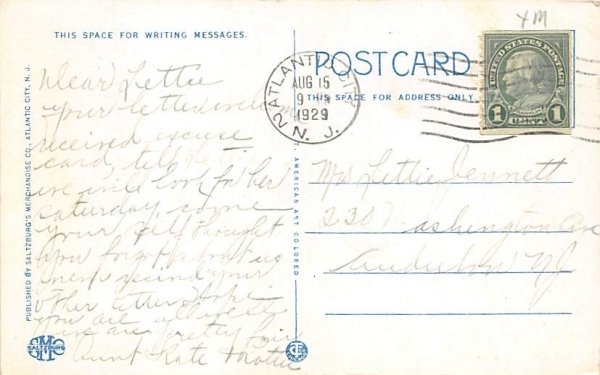 THIS SPACE FOR WRITING MESSAGES.
Dear Lettie
your letter
received excuse
card, tell
we will look for her
Saturday, come
your self thought
you forgot about us
never recind your
other letter hope
you are all well
we are pretty
Aunt Kate Mattie
PUBLISHED BY SALTZBURG'S MERCHANDISE CO., ATLANTIC CITY, N. J.
SMC
SALTZBURG'S
POSTCARD
THIS SPACE FOR ADDRESS ONLY.
ATLANTIC CITY
2
AUG 15
9
1929
N. J.
UNITED STATES POSTAGE
1 CENT 1
AMERICAN ART COLORED
Lettie Jennett
2307 ashington Av
Audubon NJ